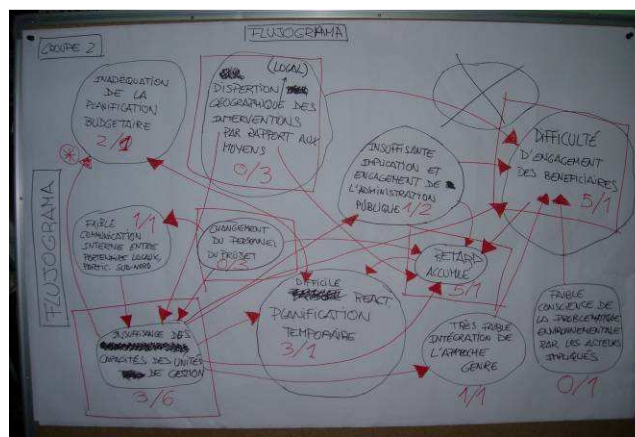 FLUJOGRAMA
GROUPE 2
INADEQUATION
DE LA
PLANIFICATION
BUDGETAIRE
2/1
(LOCAL)
DISPERTION
GÉOGRAPHIQUE DES
INTERVENTIONS
PAR RAPPORT AUX
MOYENS
0/3
INSUFFISANTE
IMPLICATION ET
ENGAGEMENT DE
L'ADMINISTRATION
PUBLIQUE 1/2
DIFFICULTÉ
D'ENGAGEMENT
DES BENEFICIAIRES
5/1
FLUJOGRAMA
FAIBLE 1/1
COMMUNICATION
INTERNE ENTRE
PARTENAIRE LOCAUX,
PARTIC. SUD-NORD
CHANGEMENT
DU PERSONNEL
DU PROJET
0/3
RETARD
ACCUMULÉ
5/1
DIFFICILE
REACT
PLANIFICATION
TEMPORAIRE
3/1
INSUFFISANCE DES
CAPACITÉS DES UNITÉS
DE GESTION
3/6
TRÈS FAIBLE
INTÉGRATION DE
L'APPROCHE
GENRE
1/1
FAIBLE
CONSCIENCE DE
LA PROBLEMATIQUE
ENVIRONNEMENTALE
PAR LES ACTEURS
IMPLIQUÉS
0/1